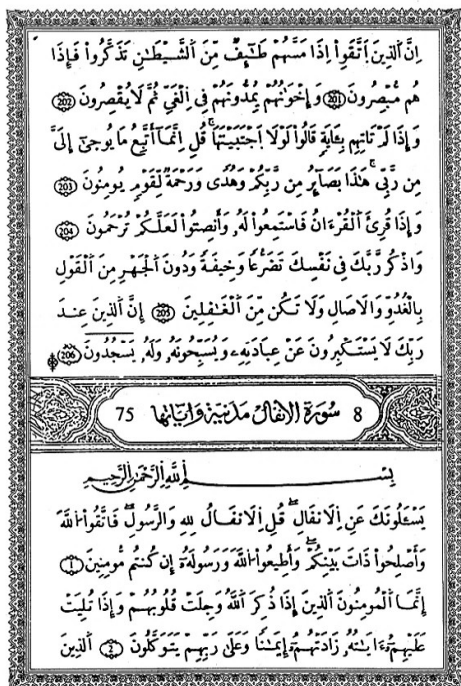 إِنَّ ٱلَّذِينَ ٱتَّقَوِاْ اِذَا مَسَّهُمْ طَـٰٓئِفٌ مِّنَ ٱلشَّيْطَـٰنِ تَذَكَّرُواْ فَإِذَا
هُم مُّبْصِرُونَ 201 وَإِخْوَٰنُهُمْ يُمِدُّونَهُمْ فِى ٱلْغَىِّ ثُمَّ لَا يُقْصِرُونَ 202
وَإِذَا لَمْ تَاتِهِم بِـَٔايَةٍ قَالُواْ لَوْلَا ٱجْتَبَيْتَهَا قُلِ اِنَّمَآ أَتَّبِعُ مَا يُوحَىٰٓ إِلَىَّ
مِن رَّبِّى هَـٰذَا بَصَآئِرُ مِن رَّبِّكُمْ وَهُدًى وَرَحْمَةٌ لِّقَوْمٍ يُومِنُونَ 203
وَإِذَا قُرِئَ ٱلْقُرْءَانُ فَاسْتَمِعُواْ لَهُۥ وَأَنصِتُواْ لَعَلَّكُمْ تُرْحَمُونَ 204
وَاذْكُر رَّبَّكَ فِى نَفْسِكَ تَضَرُّعًا وَخِيفَةً وَدُونَ ٱلْجَهْرِ مِنَ ٱلْقَوْلِ
بِالْغُدُوِّ وَالَاصَالِ وَلَا تَكُن مِّنَ ٱلْغَـٰفِلِينَ 205 إِنَّ ٱلَّذِينَ عِندَ
رَبِّكَ لَا يَسْتَكْبِرُونَ عَنْ عِبَادَتِهِۦ وَيُسَبِّحُونَهُۥ وَلَهُۥ يَسْجُدُونَ 206
8 سُورَةُ الاَنفَالِ مَدَنِيَّة وَءايَاتُهَا 75
بِسْمِ ٱللَّهِ ٱلرَّحْمَـٰنِ ٱلرَّحِيمِ
يَسْـَٔلُونَكَ عَنِ اِلَانفَالِ قُلِ اِلَانفَالُ لِلهِ وَالرَّسُولِ فَاتَّقُواْ ٱللَّهَ
وَأَصْلِحُواْ ذَاتَ بَيْنِكُمْ وَأَطِيعُواْ ٱللَّهَ وَرَسُولَهُۥٓ إِن كُنتُم مُّومِنِينَ 1
إِنَّمَا ٱلْمُومِنُونَ ٱلَّذِينَ إِذَا ذُكِرَ ٱللَّهُ وَجِلَتْ قُلُوبُهُمْ وَإِذَا تُلِيَتْ
عَلَيْهِمُۥٓ ءَايَـٰتُهُۥ زَادَتْهُمُۥٓ إِيمَـٰنًا وَعَلَىٰ رَبِّهِمْ يَتَوَكَّلُونَ 2 ٱلَّذِينَ